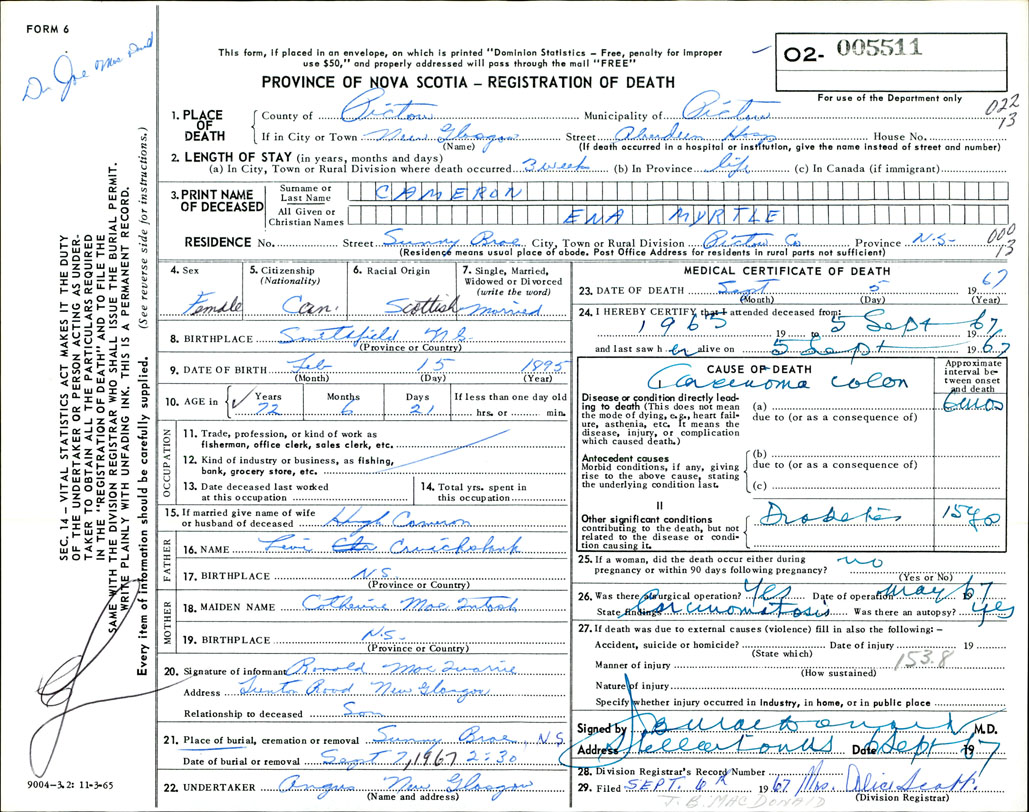 FORM 6
Dr Joe MacDonald
This form, if placed in an envelope, on which is printed "Dominion Statistics – Free, penalty for improper
use $50," and properly addressed will pass through the mail "FREE"
PROVINCE OF NOVA SCOTIA – REGISTRATION OF DEATH
O2- 005511
For use of the Department only
022
13
1. PLACE OF DEATH
County of Pictou Municipality of Pictou
If in City or Town New Glasgow Street Aberdeen Hosp House No.
(Name) (If death occurred in a hospital or institution, give the name instead of street and number)
2. LENGTH OF STAY (in years, months and days)
(a) In City, Town or Rural Division where death occurred 3 week (b) In Province life (c) In Canada (if immigrant)
3. PRINT NAME OF DECEASED
Surname or Last Name CAMERON
All Given or Christian Names ENA MYRTLE
RESIDENCE No. Street Sunny Brae City, Town or Rural Division Pictou Co Province N.S-
(Residence means usual place of abode. Post Office Address for residents in rural parts not sufficient)
000
13
4. Sex
Female
5. Citizenship
(Nationality)
Can.
6. Racial Origin
Scottish
7. Single, Married,
Widowed or Divorced
(write the word)
Married
8. BIRTHPLACE Smithfield N.S
(Province or Country)
9. DATE OF BIRTH Feb 15 1895
(Month) (Day) (Year)
10. AGE in Years Months Days If less than one day old
72 6 21 hrs. or min.
OCCUPATION
11. Trade, profession, or kind of work as
fisherman, office clerk, sales clerk, etc.
12. Kind of industry or business, as fishing,
bank, grocery store, etc.
13. Date deceased last worked
at this occupation
14. Total yrs. spent in
this occupation
15. If married give name of wife
or husband of deceased Hugh Cameron
FATHER
16. NAME Levi Cruickshank
17. BIRTHPLACE N.S.
(Province or Country)
MOTHER
18. MAIDEN NAME Catherine MacIntosh
19. BIRTHPLACE N.S-
(Province or Country)
20. Signature of informant Ronald
Address Road New Glasgow
Relationship to deceased Son
21. Place of burial, cremation or removal Sunny Brae, N.S.
Date of burial or removal Sept 7, 1967 2:30
22. UNDERTAKER Angus New Glasgow
(Name and address)
MEDICAL CERTIFICATE OF DEATH
23. DATE OF DEATH Sept 5 1967
(Month) (Day) (Year)
24. I HEREBY CERTIFY that I attended deceased from:
1965 19 to 5 Sept 67
and last saw her alive on 5 Sept 1967
CAUSE OF DEATH
Approximate interval between onset and death
Carcinoma colon
Disease or condition directly leading to death (This does not mean the mode of dying, e.g., heart failure, asthenia, etc. It means the disease, injury, or complication which caused death.)
(a) 6 mos
due to (or as a consequence of)
Antecedent causes
Morbid conditions, if any, giving rise to the above cause, stating the underlying condition last.
(b)
due to (or as a consequence of)
(c)
II
Other significant conditions
contributing to the death, but not related to the disease or condition causing it.
Diabetes 15 yo
25. If a woman, did the death occur either during
pregnancy or within 90 days following pregnancy? no
(Yes or No)
26. Was there a surgical operation? Yes Date of operation May 1967
State findings Carcinomatosis Was there an autopsy? yes
27. If death was due to external causes (violence) fill in also the following: –
Accident, suicide or homicide? Date of injury 19
(State which)
153.8
Manner of injury
(How sustained)
Nature of injury
Specify whether injury occurred in industry, in home, or in public place
Signed by M.D.
Address Stellarton NS Date 6 Sept 1967
28. Division Registrar's Record Number
29. Filed SEPT. 1967 Mrs. Alice Scott.
(Division Registrar)
J.B. MACDONALD
SEC. 14 – VITAL STATISTICS ACT MAKES IT THE DUTY
OF THE UNDERTAKER OR PERSON ACTING AS UNDER-
TAKER TO OBTAIN ALL THE PARTICULARS REQUIRED
IN THE "REGISTRATION OF DEATH" AND TO FILE THE
SAME WITH THE DIVISION REGISTRAR WHO SHALL ISSUE THE BURIAL PERMIT.
WRITE PLAINLY WITH UNFADING INK. THIS IS A PERMANENT RECORD.
Every item of information should be carefully supplied. (See reverse side for instructions.)
9004-3.2: 11-3-65